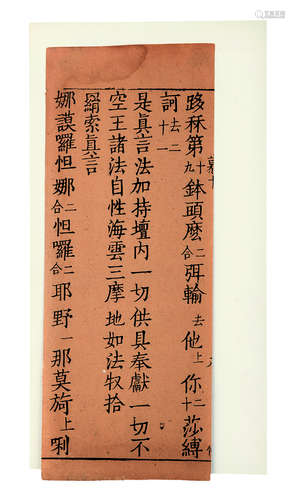 第十九鉢頭麽二合弭輸去他上你二十莎縛
訶去二十一
是眞言法加持壇内一切供具奉獻一切不
空王諸法自性海雲三摩地如法収拾
羂索眞言
娜謨囉怛娜二合怛囉二合耶野一那莫旖上唎